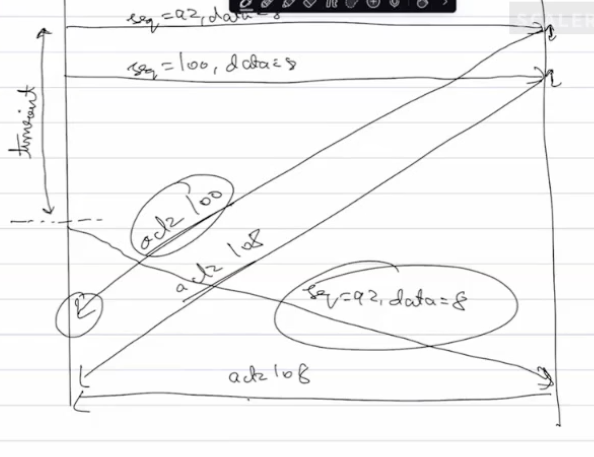 seq=92, data=8
SCALER
seq=100, data=8
timeout
ack 100
ack 108
seq=92, data=8
ack 108